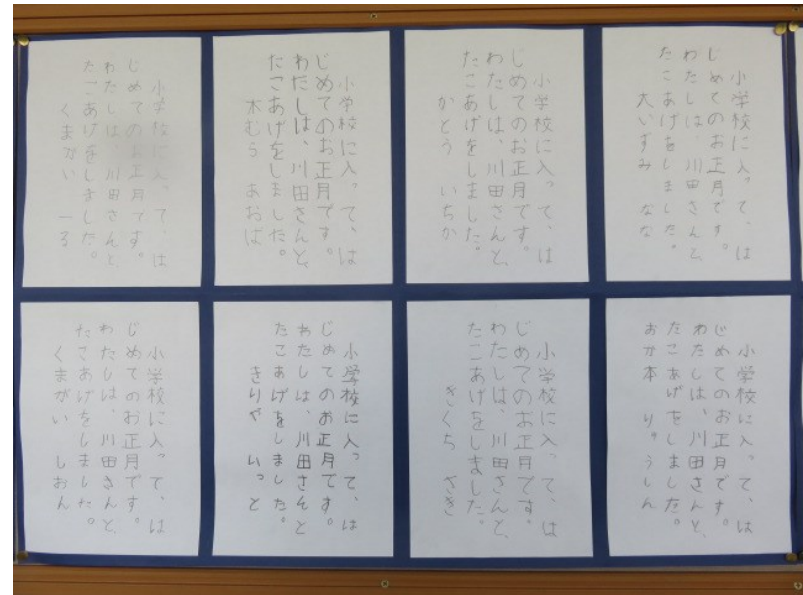 小学校に入って、は
じめてのお正月です。
わたしは、川田さんと、
たこあげをしました。
大いずみ なな
小学校に入って、は
じめてのお正月です。
わたしは、川田さんと、
たこあげをしました。
かとう いちか
小学校に入って、は
じめてのお正月です。
わたしは、川田さんと、
たこあげをしました。
木むら あおば
小学校に入って、は
じめてのお正月です。
わたしは、川田さんと、
たこあげをしました。
くまがい 一る
小学校に入って、は
じめてのお正月です。
わたしは、川田さんと、
たこあげをしました。
おか本 りゅうしん
小学校に入って、は
じめてのお正月です。
わたしは、川田さんと、
たこあげをしました。
きくち さき
小学校に入って、は
じめてのお正月です。
わたしは、川田さんと
たこあげをしました。
きりや いっと
小学校に入って、は
じめてのお正月です。
わたしは、川田さんと、
たこあげをしました。
くまがい しおん